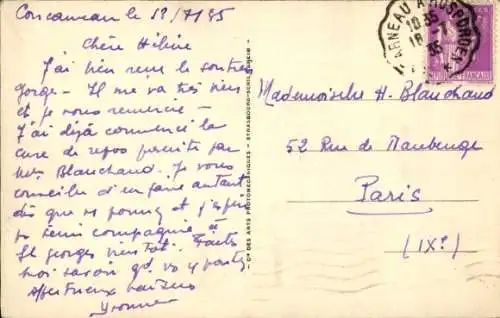 Concarneau le 18/7/35
Chère Hélène
J'ai bien reçu le soutien
gorge - Il me va très bien
et je vous remercie -
J'ai déjà commencé la
cure de repos prescrite par
Blanchard. Je vous
conseille d'en faire autant
dès que vs pourrez et j'espère
vs tenir compagnie à
St georges bientôt. Faites
moi savoir qd. vs y partez
Affectueux baisers
Yvonne
CONCARNEAU A ROSPORDEN
18 35
18 -7
35
Mademoiselle H. Blanchard
52 Rue de Maubeuge
Paris
(IXe)
- Cie DES ARTS PHOTOMÉCANIQUES - STRASBOURG-SCHILTIGHEIM -